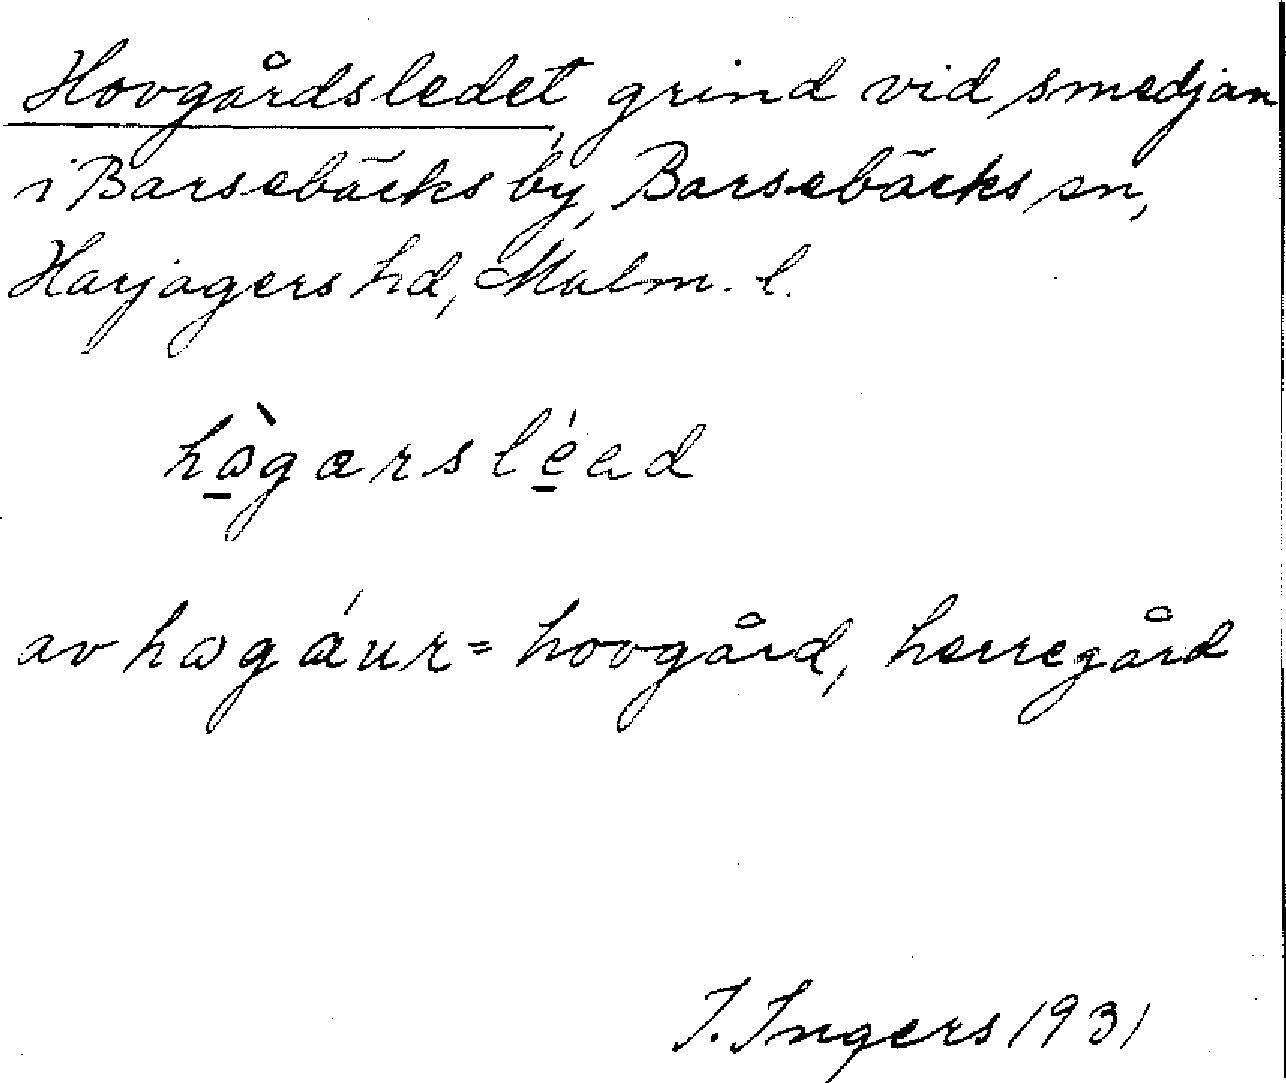 Hovgårdsledet, grind vid smedjan
i Barsebäcks by, Barsebäcks sn,
Harjagers hd, Malm. l.
hɷ̱̀garslé̱ad
av hɷgáur = hovgård, herregård
I. Ingers 1931